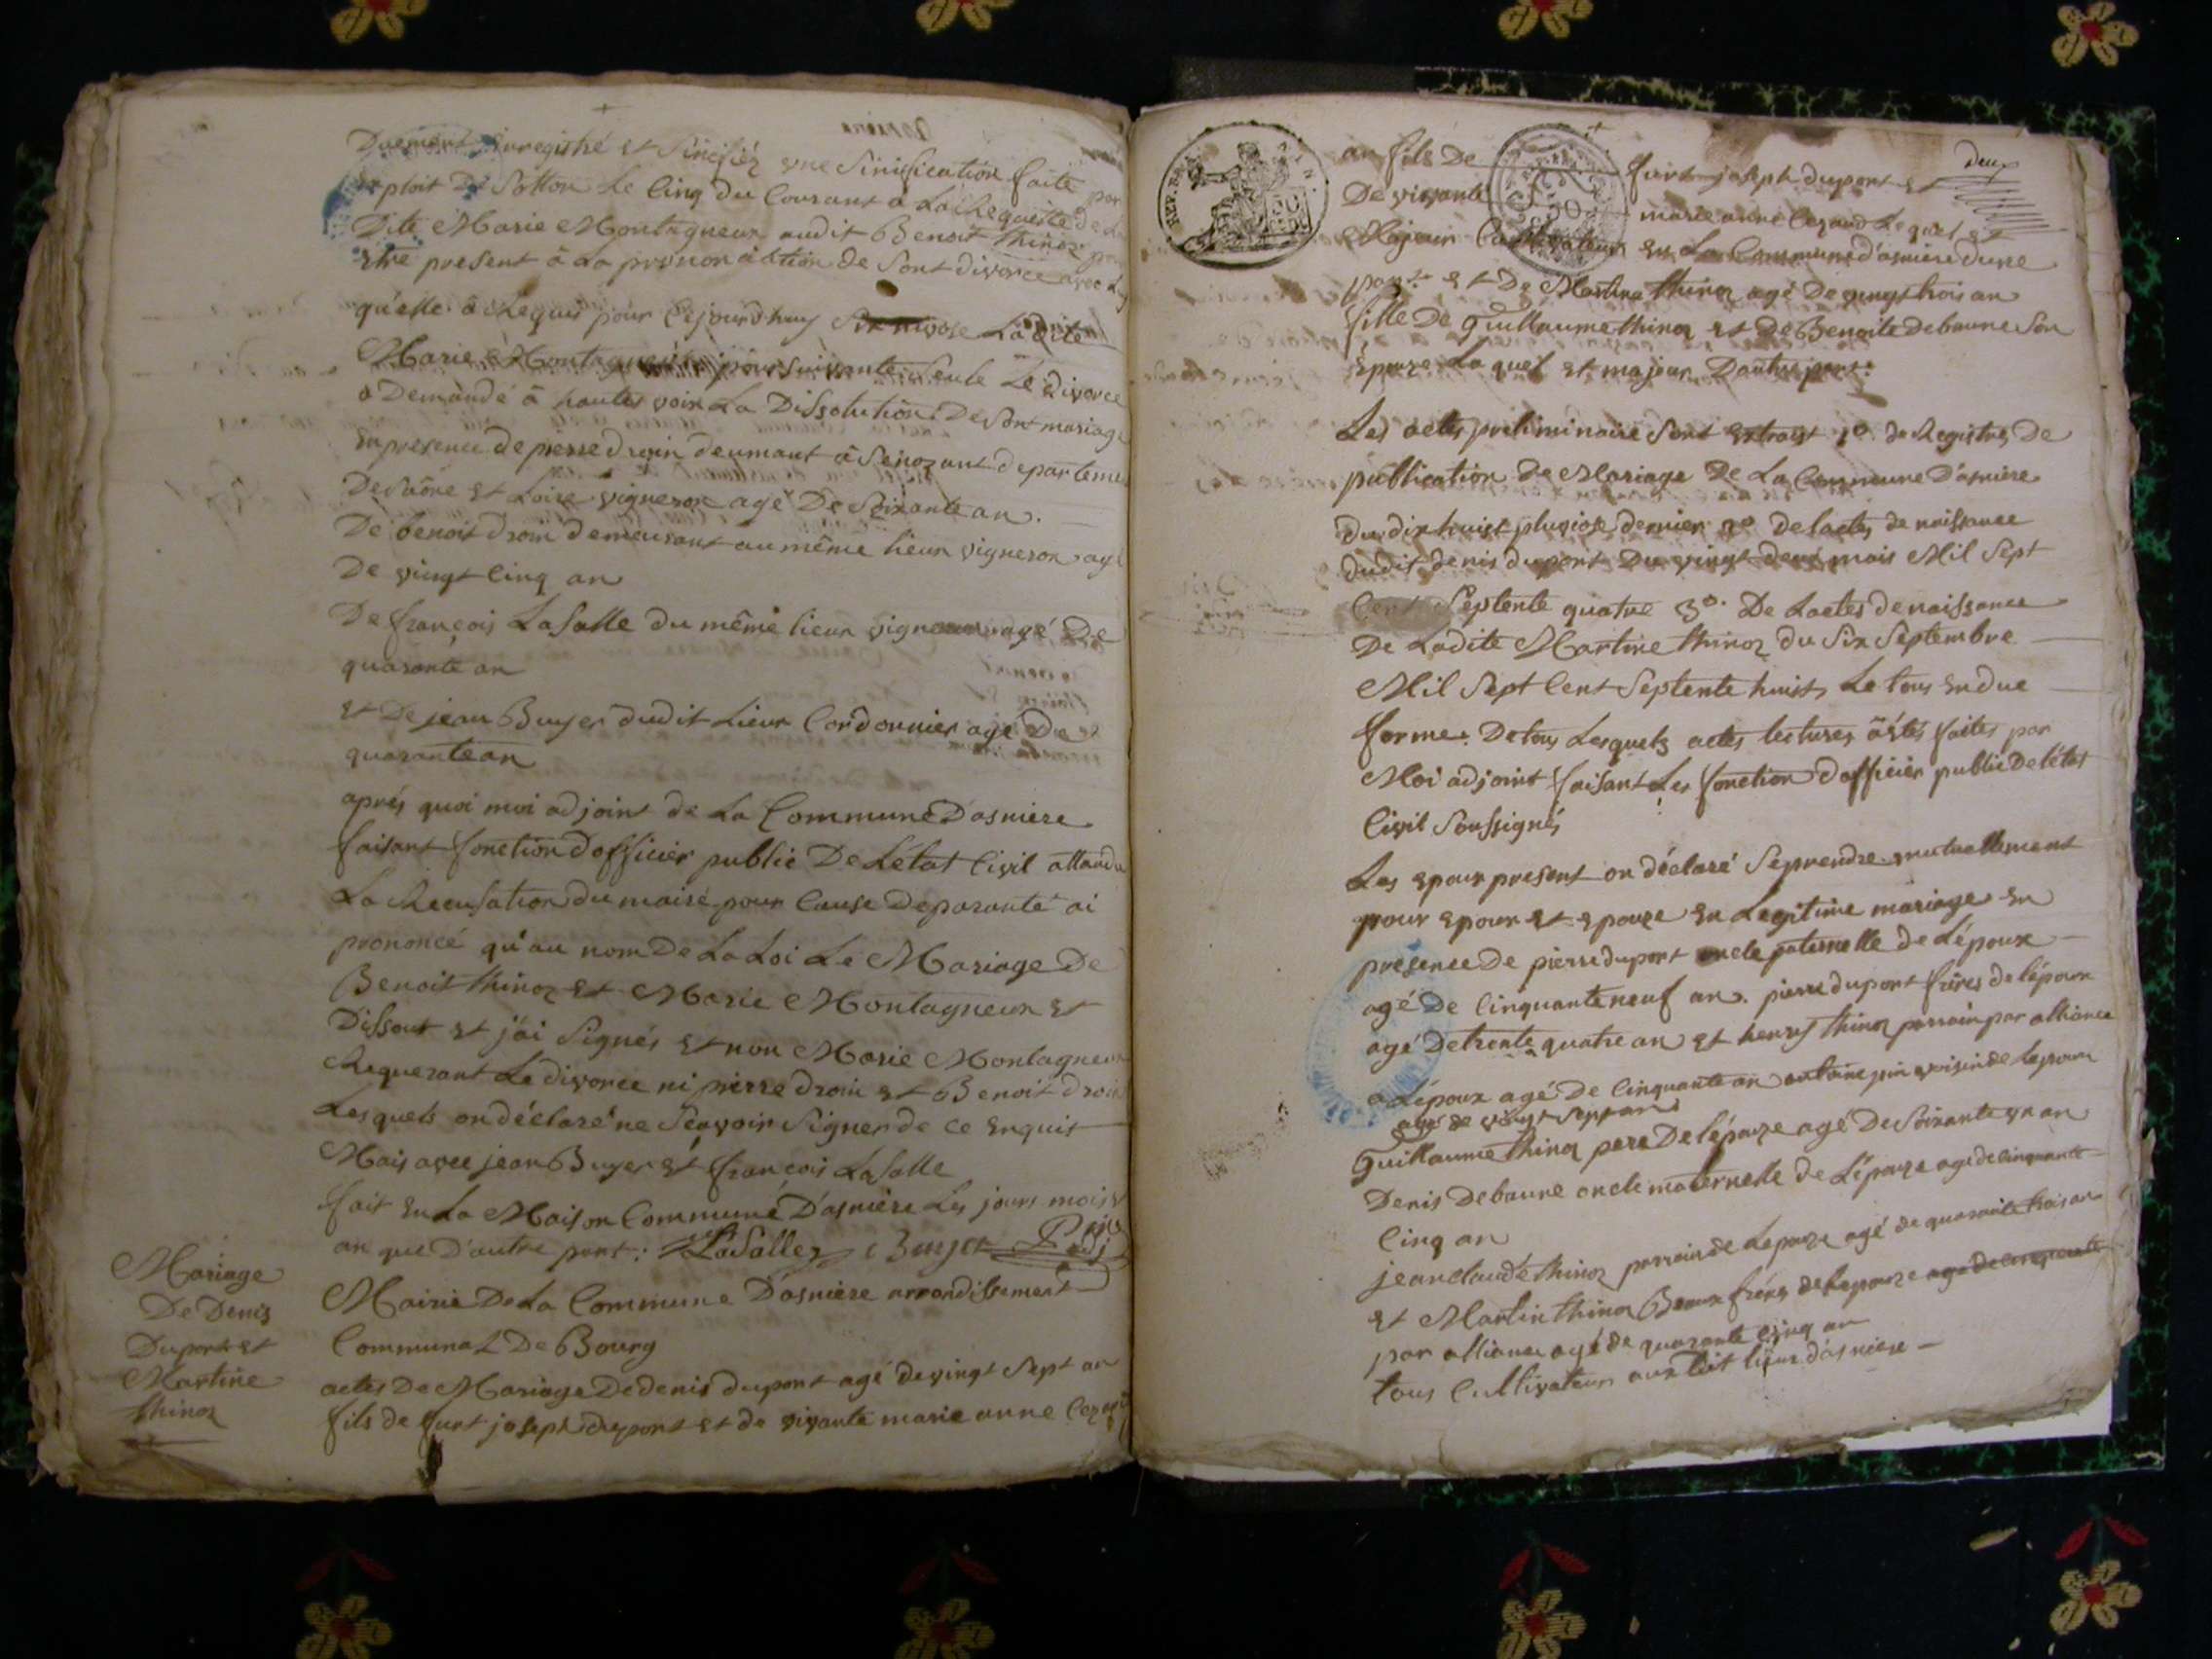 Duement Enregistré et Sinifiéz une Sinification faite par
ploit De Sotton Le Cinq du Courant a La Requette de La
Dite Marie Montagneux audit Benoit thinoz pr
etre present à La prononciation de Sont divorce avec Luy
qu'elle à Requis pour Cejourd'huy Six nivose Ladite
Marie Montagneux poursuivante Seule Le divorce
a Demandé à hautes voix La Dissolution De Sont mariage
En presence de pierre droin deumant à Senozant departeme
De Saône et Loire vigneron agé De Soixante an.
De benoit droin demeurant au même lieux vigneron agé
De vingt Cinq an
De françois LaSalle du même lieux vigneron agé De
quarante an
et De jean Buyer dudit Lieux Cordonnier agé De
quarante an
aprés quoi moi adjoint de La Commune D'asniere
faisant fonction d'officier public De L'état Civil attandu
La Recusation du maire pour Cause De paranté ai
prononcé qu'au nom De La Loi Le Mariage De
Benoit thinoz et Marie Montagneux et
Dissout et j'ai Signés et non Marie Montagneux
Requerant Le divorce ni pierre droin et Benoit droin
Lesquels on déclaré ne Scavoir Signer de ce Enquit
Mais avec jean Buyer et françois LaSalle
fait En La Maison Commune D'asniere Les jours mois et
an que D'autre part: LaSalle Buyer
Mairie De La Commune D'asniere arrondissement
Communal De Bourg
actes De Mariage De denis dupont agé de vingt Sept an
fils de furt joseph dupont et de vivante marie anne
Mariage
De Denis
Dupont et
Martine
thinoz
deux
REP. FRA.
an fils De furt joseph dupont et
De vivante marie anne Lequel et
Majeur Cultivateur En La Commune d'asniere d'une
part et De Martine thinoz agé De vingt trois an
fille De Guillaume thinoz et De Benoite Debaune Son
Epouze La quel et majeur D'autre part:
Les actes preliminaire Sont Extrait 1º. de Registres De
publication De Mariage De La Commune D'asniere
du dix huict pluviose dernier 2º De l'actes de naissance
dudit denis dupont Du vingt deux mais Mil Sept
Cent Septente quatre 3º. De L'actes de naissance
De Ladite Martine thinoz du Six Septembre
Mil Sept Cent Septente huist, Le tous En due
forme. De tous Lesquels actes lectures à étés faites par
Moi adjoint faisant Les fonction d'officier public De l'état
Civil Soussignés
Les epoux present on déclaré Se prendre mutuellement
pour epoux et epouze En Legitime mariage En
présence De pierre dupont oncle paternelle de L'époux
agé De Cinquante neuf an. pierre dupont frères de l'époux
agé De trente quatre an et henry thinoz parrain par alliance
a L'époux agé De Cinquante an antoine voisin de lepoux
agé de vingt Sept an
Guillaume thinoz pere De l'épouze agé De Soixante un an
Denis Debaune oncle maternelle de L'épouze agé de cinquante
Cinq an
jean claude thinoz parrain de Lepouze agé de quarante trois an
et Martin thinoz Beaux frères de Lepouze agé de cinquante
par alliance agé de quarante cinq an
tous Cultivateurs aux dit lieux d'asniere